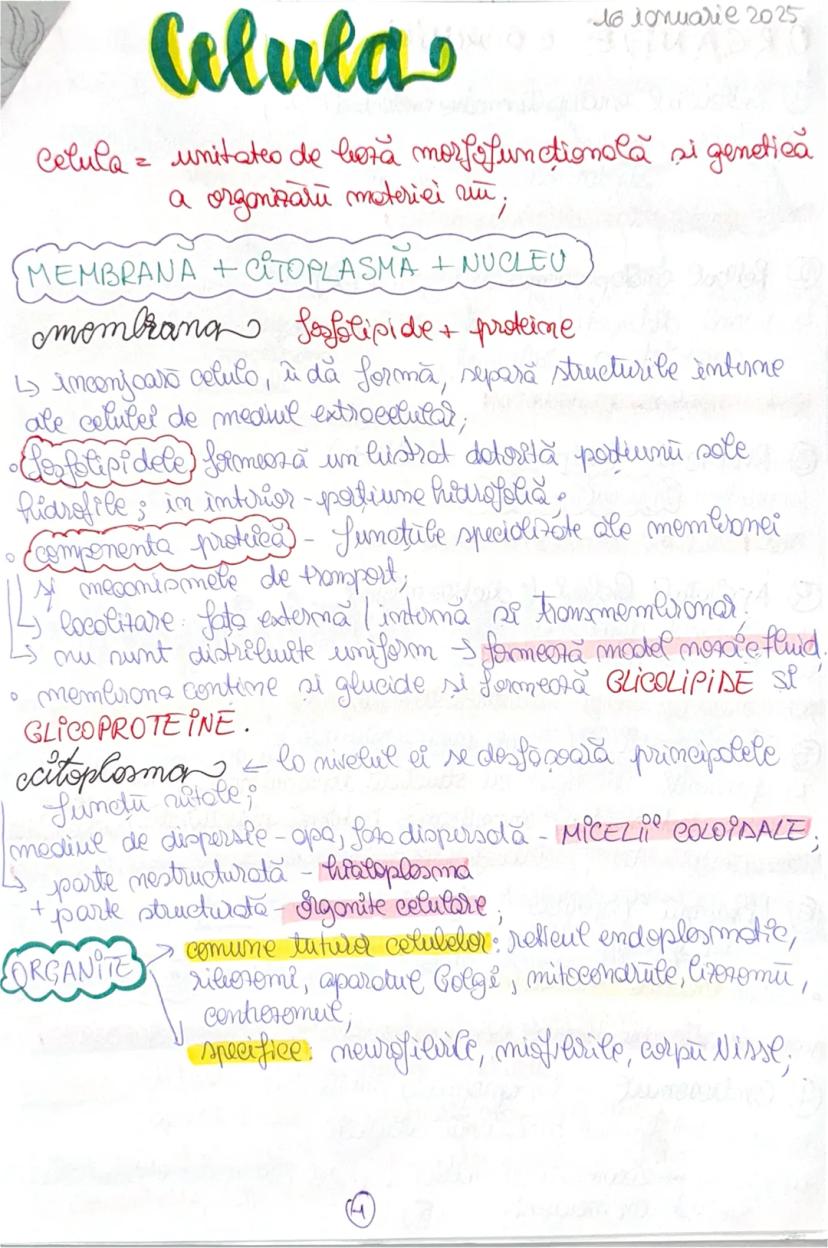 16 ianuarie 2025
Celula
Celula = unitatea de bază morfofuncțională și genetică
a organizării materiei vii;
MEMBRANĂ + CITOPLASMĂ + NUCLEU
membrana fosfolipide + proteine
↳ inconjoară celula, îi dă formă, separă structurile interne
ale celulei de mediul extracelular;
• fosfolipidele formează un bistrat datorită porțiunii sale
hidrofile; in interior - porțiune hidrofobă;
• componenta proteică - funcțiile specializate ale membranei
și mecanismele de transport;
↳ localizare: fața externă / internă și transmembranar.
↳ nu sunt distribuite uniform → formează model mozaic fluid.
• membrana contine și glucide și formează GLICOLIPIDE SI
GLICOPROTEINE.
citoplasma ← la nivelul ei se desfășoară principalele
funcții vitale;
mediul de dispersie - apa, faza dispersată - MICELII COLOIDALE;
↳ parte nestructurată - hialoplasma
+ parte structurată - organite celulare;
ORGANITE → comune tuturor celulelor: reticul endoplasmatic,
ribozomi, aparatul Golgi, mitocondriile, lizozomii,
centrozomul;
specifice: neurofibrile, miofibrile, corpii Nissl;
4